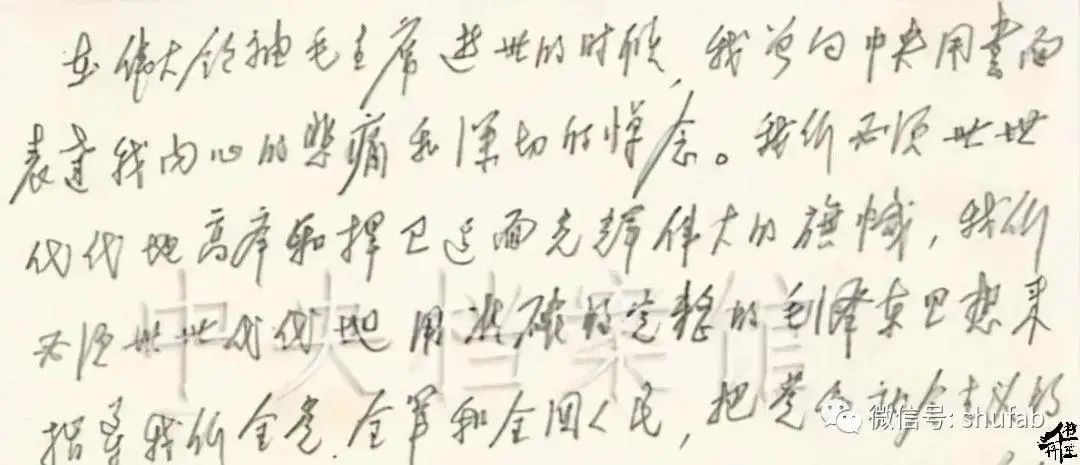 在伟大领袖毛主席逝世的时候，我曾向中央用書面
表达我内心的悲痛和深切的悼念。我们必须世世
代代地高举和捍卫这面光辉伟大的旗帜，我们
必须世世代代地用准确的完整的毛泽东思想来
指导我们全党、全军和全国人民，把党和社会主义的
中央档案馆
微信号: shufab